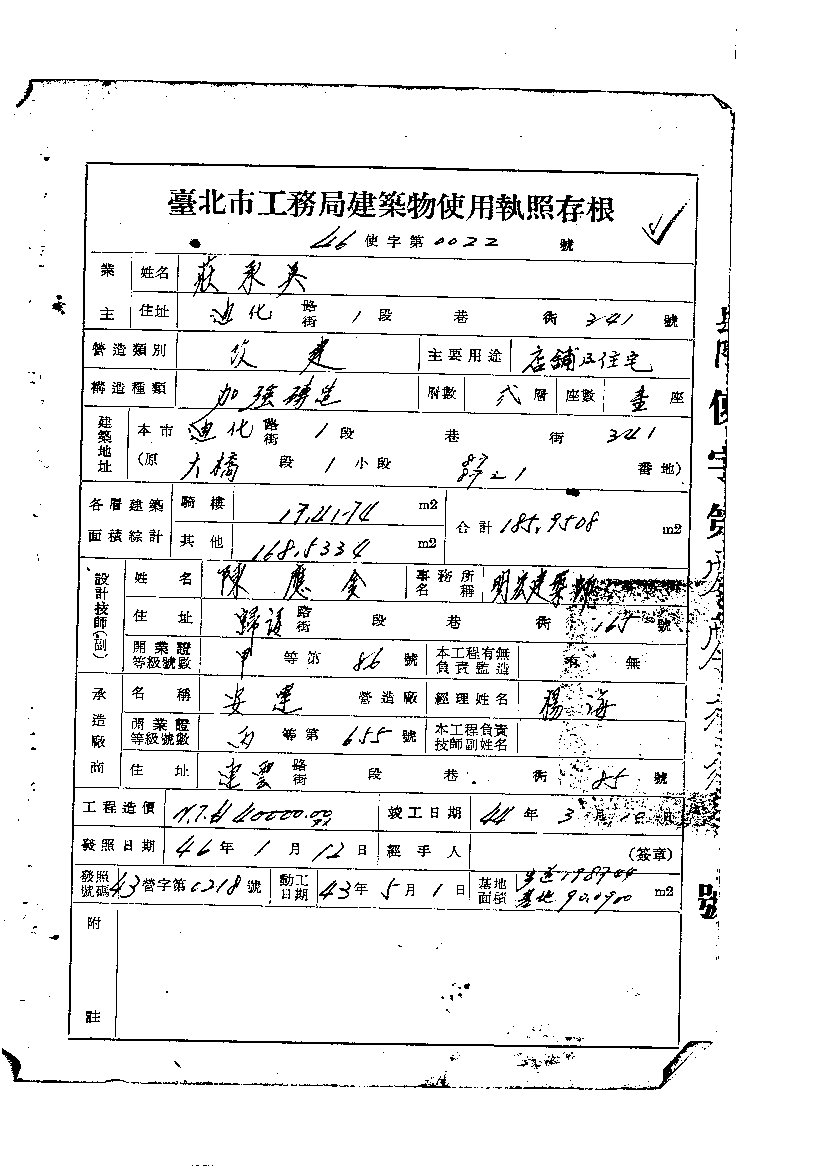 臺北市工務局建築物使用執照存根
46 使字第 0022 號
業主 姓名 莊泉英
住址 迪化 路街 1 段 巷 街 241 號
營造類別 改建 主要用途 店舖及住宅
構造種類 加強磚造 層數 弐 層 座數 壹 座
建築地址 本市 迪化 路街 1 段 巷 街 241
(原 大橋 段 1 小段 87 87-21 番地)
各層建築面積綜計 騎樓 17.4174 m2 合計 185.9508 m2
其他 168.5334 m2
設計技師(副) 姓名 陳應金 事務所名稱
住址 歸綏 路街 段 巷 街 165 號
開業證等級號數 甲 等第 86 號 本工程有無負責監造 有 無
承造廠商 名稱 安運 營造廠 經理姓名 楊海
開業證等級號數 丙 等第 655 號 本工程負責技師副姓名
住址 速雲 路街 段 巷 街 85 號
工程造價 N.T.$ 40000.00 竣工日期 44 年 3 月 1 日
發照日期 46 年 1 月 12 日 經手人 (簽章)
發照號碼 43 營字第 0218 號 動工日期 43 年 5 月 1 日 基地面積 基地 90.0900 m2
附註
使字第
號